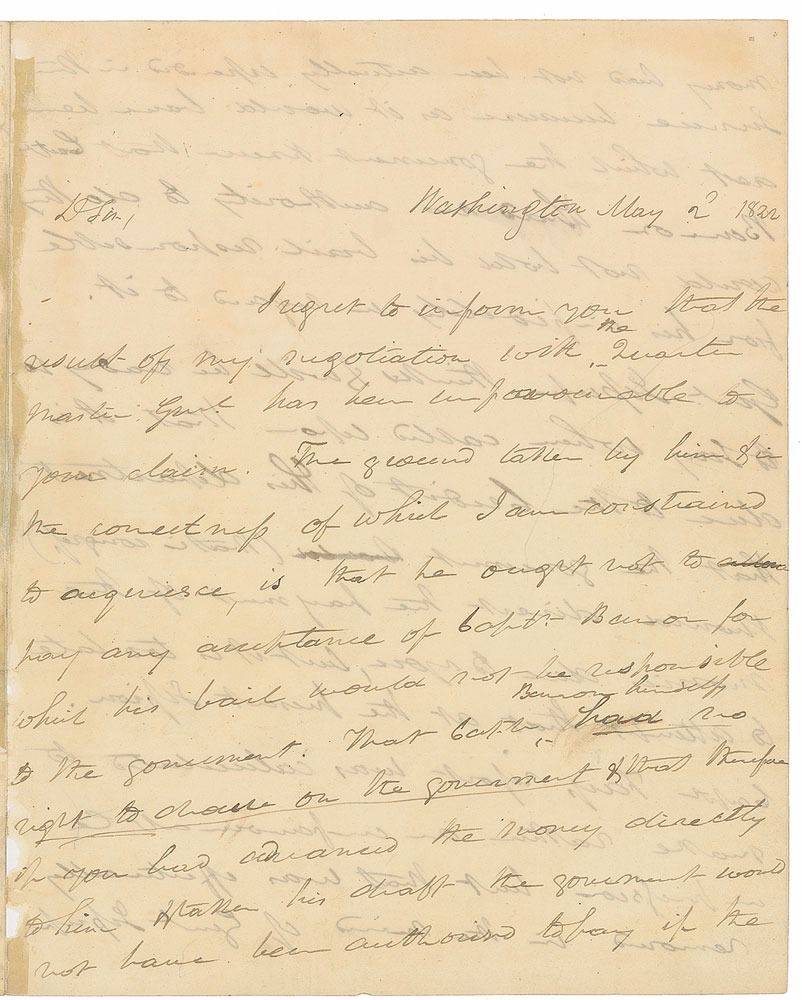 Washington May 2d 1822
D Sir,
I regret to inform you that the
result of my negotiation with the Quarter
master Genl. has been unfavourable to
your claim. The ground taken by him & in
the correctness of which I am constrained
to acquiesce, is that he ought not to allow
pay any acceptance of Captn. Barron for
which his bail would not be responsible
to the government. That Captn. Barron himself had no
right to draw on the government & that therefore
if you had advanced the money directly
to him & taken his draft the government would
not have been authorised to pay if the